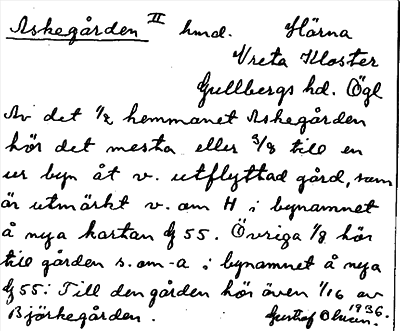 Askegården II hmd. Stärna
Vreta Kloster
Gullbergs hd. Ögl
Av det 1/2 hemmanet Askegården
hör det mesta eller 3/8 till en
ur byn åt v. utflyttad gård, som
är utmärkt v. om H i bynamnet
å nya kartan G 55. Övriga 1/8 hör
till gården s. om -a i bynamnet å nya
G 55. Till den gården hör även 1/16 av
Björkegården. Gustaf Olsson. 1936.